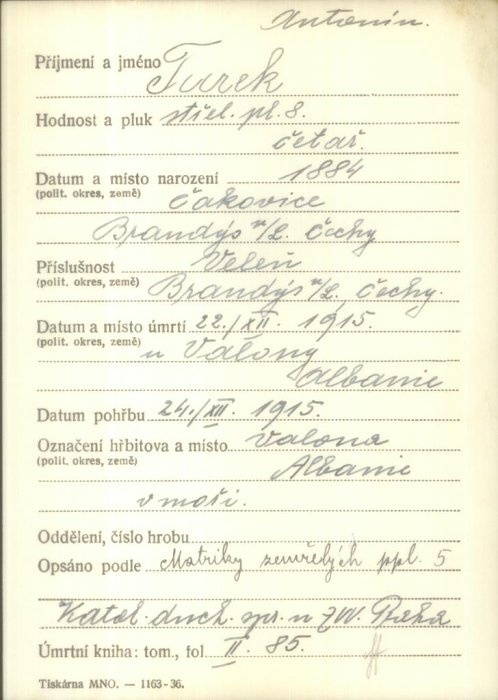 Antonín.
Příjmení a jméno Turek
Hodnost a pluk střel. pl. 8.
četař.
Datum a místo narození 1884
(polit. okres, země) Čakovice
Brandýs n/L. Čechy
Příslušnost Veleň
(polit. okres, země) Brandýs n/L. Čechy.
Datum a místo úmrtí 22./XII. 1915.
(polit. okres, země) u Valony
Albanie
Datum pohřbu 24./XII. 1915.
Označení hřbitova a místo Valona
(polit. okres, země) Albanie
v moři.
Oddělení, číslo hrobu
Opsáno podle Matriky zemřelých ppl. 5
Katol. duch. spr. u ZVV. Praha
Úmrtní kniha: tom., fol. II. 85.
Tiskárna MNO. — 1163-36.